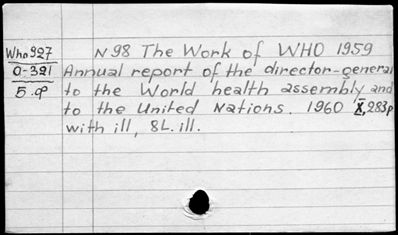 Who927 N98 The Work of WHO 1959
O-321 Annual report of the director-general
5.9 to the World health assembly and
to the United Nations. 1960 X,283p
with ill, 8L. ill.